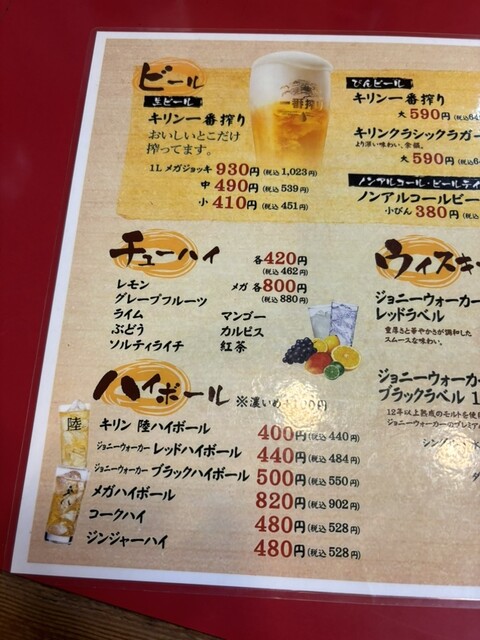 ビール
生ビール
キリン一番搾り
おいしいとこだけ
搾ってます。
1L メガジョッキ 930円(税込1,023円)
中 490円(税込 539円)
小 410円(税込 451円)
一番搾り
びんビール
キリン一番搾り
大 590円
キリンクラシックラガー
より深い味わい、余韻。
大 590円
ノンアルコール・ビールテイ
ノンアルコールビー
小びん 380円
チューハイ
各420円
(税込 462円)
メガ 各800円
(税込 880円)
レモン
グレープフルーツ
ライム
ぶどう
ソルティライチ
マンゴー
カルピス
紅茶
ハイボール ※濃いめ+100円
陸
キリン 陸ハイボール 400円(税込 440円)
ジョニーウォーカー レッドハイボール 440円(税込 484円)
ジョニーウォーカー ブラックハイボール 500円(税込 550円)
メガハイボール 820円(税込 902円)
コークハイ 480円(税込 528円)
ジンジャーハイ 480円(税込 528円)
ウィスキー
ジョニーウォーカー
レッドラベル
重厚さと華やかさが調和した
スムースな味わい。
ジョニーウォーカー
ブラックラベル 1
12年以上熟成のモルトを使用
ジョニーウォーカーのプレミア
シング